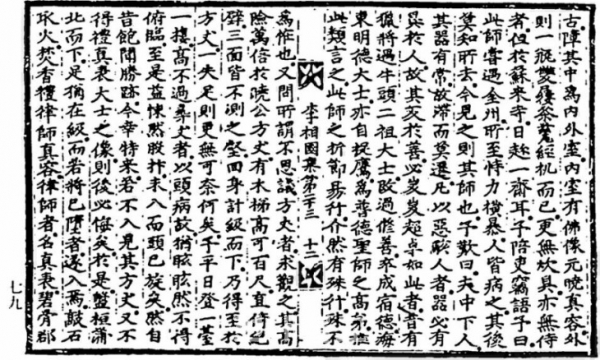 古障其中爲內外室內室有佛像元曉眞容外
則一甁雙屨茶瓷經机而已更無炊具亦無侍
者但於蘇來寺日趁一齋耳予陪吏竊語予曰
此師嘗過全州所至恃力橫暴人皆病之其後
莫知所去今見之則其師也予歎曰夫中下人
其器有常故滯而莫遷凡以惡駭人者器必有
異於人故其反於善必岌岌趠卓如此者昔有
獵將遇牛頭二祖大士改過修善卒成宿德海
東明德大士亦自捉鷹爲普德聖師之高弟推
此類言之此師之折節易行介然有殊行殊不
李相國集第二十三 十二
爲怍也又問所謂不思議方丈者求觀之其高
險萬倍於曉公方丈有木梯高可百尺直倚絶
壁三面皆不測之壑回身計級而下乃得至於
方丈一失足則更無可奈何矣予平日登一臺
一樓高不過尋丈者以頭病故猶眩眩然不得
俯臨至是益悚然股抃未入而頭已旋矣然自
昔飽聞勝跡今幸特來若不入見其方丈又不
得禮眞表大士之像則後必悔矣於是盤桓蒲
北而下足猶在級而若將已墮者遂入焉敲石
取火焚香禮律師眞容律師者名眞表碧骨郡
七九